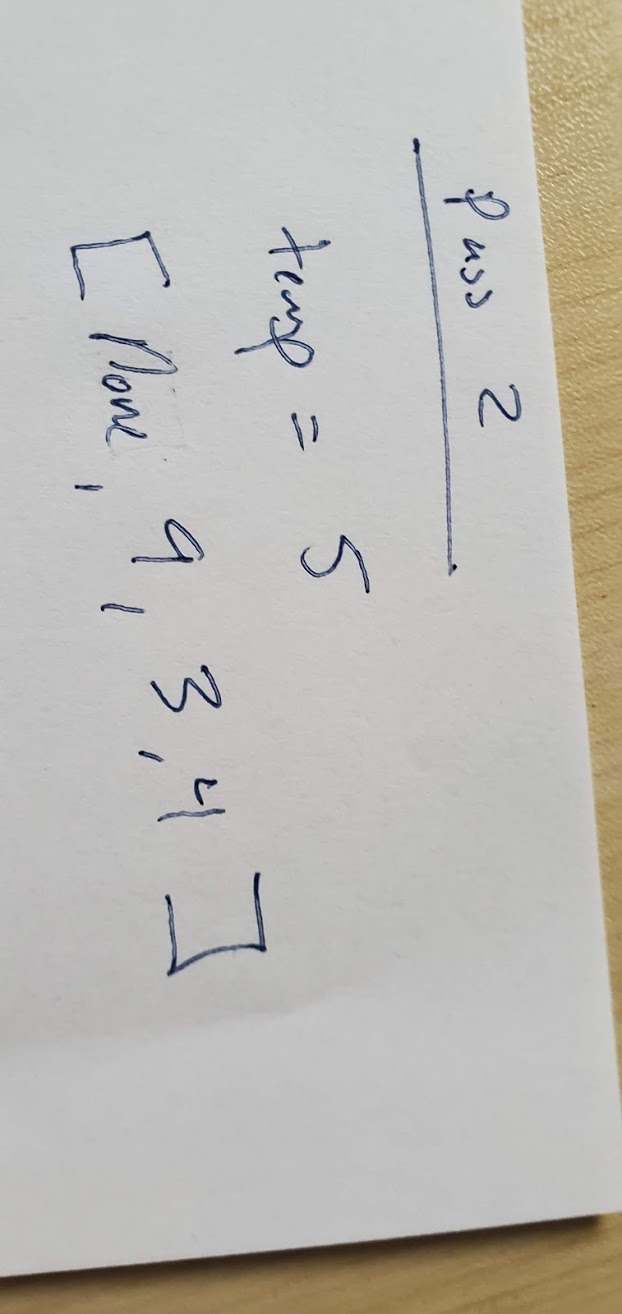 Pass 2
temp = 5
[ None, 9, 3, 4 ]